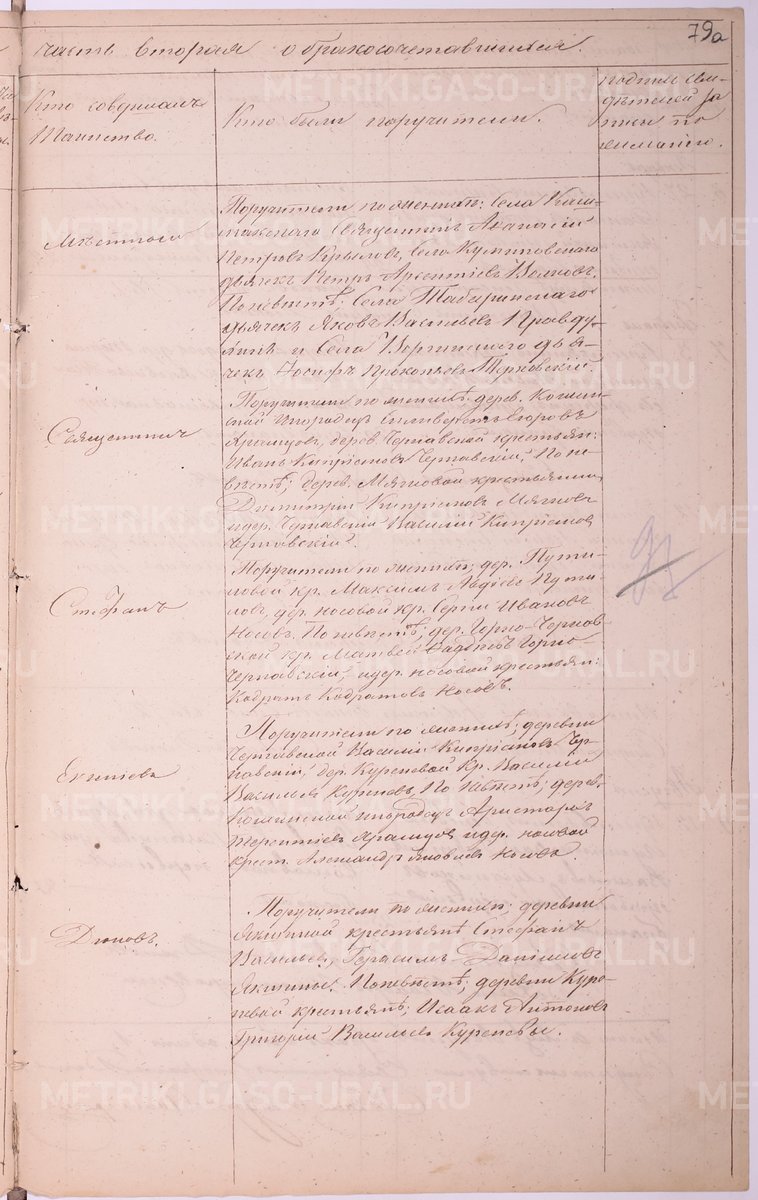 79а
часть вторая о бракосочетавшихся.
Кто совершалъ
Таинство.
Кто были поручители.
подпись сви-
дѣтелей за
писи по
желанію.
Поручители по женихѣ: Села
Священникъ Афанасій
Петровъ Крыловъ, Села
дьячекъ Петръ Арсентіевъ Волковъ.
По невѣстѣ: Села Табаринскаго
дьячекъ Яковъ Васильевъ Правду-
хинъ и Села дья-
чекъ Іосифъ Прокопьевъ Терновскій.
Мѣстный
Поручители по женихѣ: дерев. Кошин-
ской Инородецъ Егоровъ
дерев. Чернавской крестьян:
Иванъ Кипріяновъ Чернавскій, По не-
вѣстѣ; дерев. Мягковой крестьянинъ
Димитрій Кипріяновъ Мягковъ
и дер. Чернавской Василій Кипріяновъ
Чернавскій.
Священникъ
Поручители по женихѣ; дер. Пути-
ловой кр. Максимъ Авдѣевъ Пути-
ловъ, дер. Носовой кр. Сергій Ивановъ
Носовъ. По невѣстѣ; дер. Горно-Чернов-
ской кр. Матвей Горно-
Чернавскій, и дер. Носовой крестьян:
Кодратъ Кодратовъ Носовъ.
Стефанъ
Поручители по женихѣ; деревни
Чернавской Василій Кипріяновъ Чер-
навскій, дер. Куреневой Кр. Василій
Васильевъ Куреневъ, По невѣстѣ; дерев.
Кошинской инородецъ Аристархъ
Терентіевъ и дер. Носовой
крест. Александръ Яковлевъ Носовъ.
Поручители по женихѣ; деревни
Якшиной крестьяне Стефанъ
Васильевъ, Герасимъ Даниловъ
Якшины. По невѣстѣ; деревни Куре-
невой крестьяне; Исаакъ Антоновъ
Григорій Васильевъ Куреневы.
METRIKI.GASO-URAL.RU